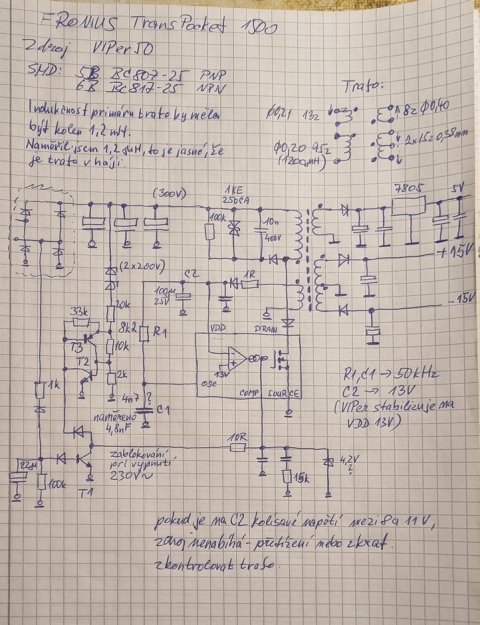 FRONIUS TransPocket 1500
Zdroj VIPer50
SMD: 5B BC807-25 PNP
6B BC817-25 NPN
Indukčnost primáru trata by měla
být kolem 1,2 mH.
Naměřil jsem 1,2 µH, to je jasné, že
je trafo v háji.
Trafo:
ϕ0,21 13z
8z ϕ0,40
ϕ0,20 95z
(1200µH)
2x15z 0,35mm
(300V)
1KE
250CA
100k
10n
400V
7805
5V
+15V
-15V
(2x200V)
C2
100µ
25V
1R
33k
8k2
20k
10k
2k
R1
T3
T2
VDD
DRAIN
13V
OSC
COMP
SOURCE
1k
4n7 ?
C1
naměřeno
4,8nF
R1,C1 → 50kHz
C2 → 13V
(VIPer stabilizuje na
VDD 13V)
zablokování
při vypnutí
230V~
10R
22µ
100k
T1
15k
4,2V
?
pokud je na C2 kolísavé napětí mezi 8 a 11 V,
zdroj nenabíhá - přetížení nebo zkrat.
zkontrolovat trafo.